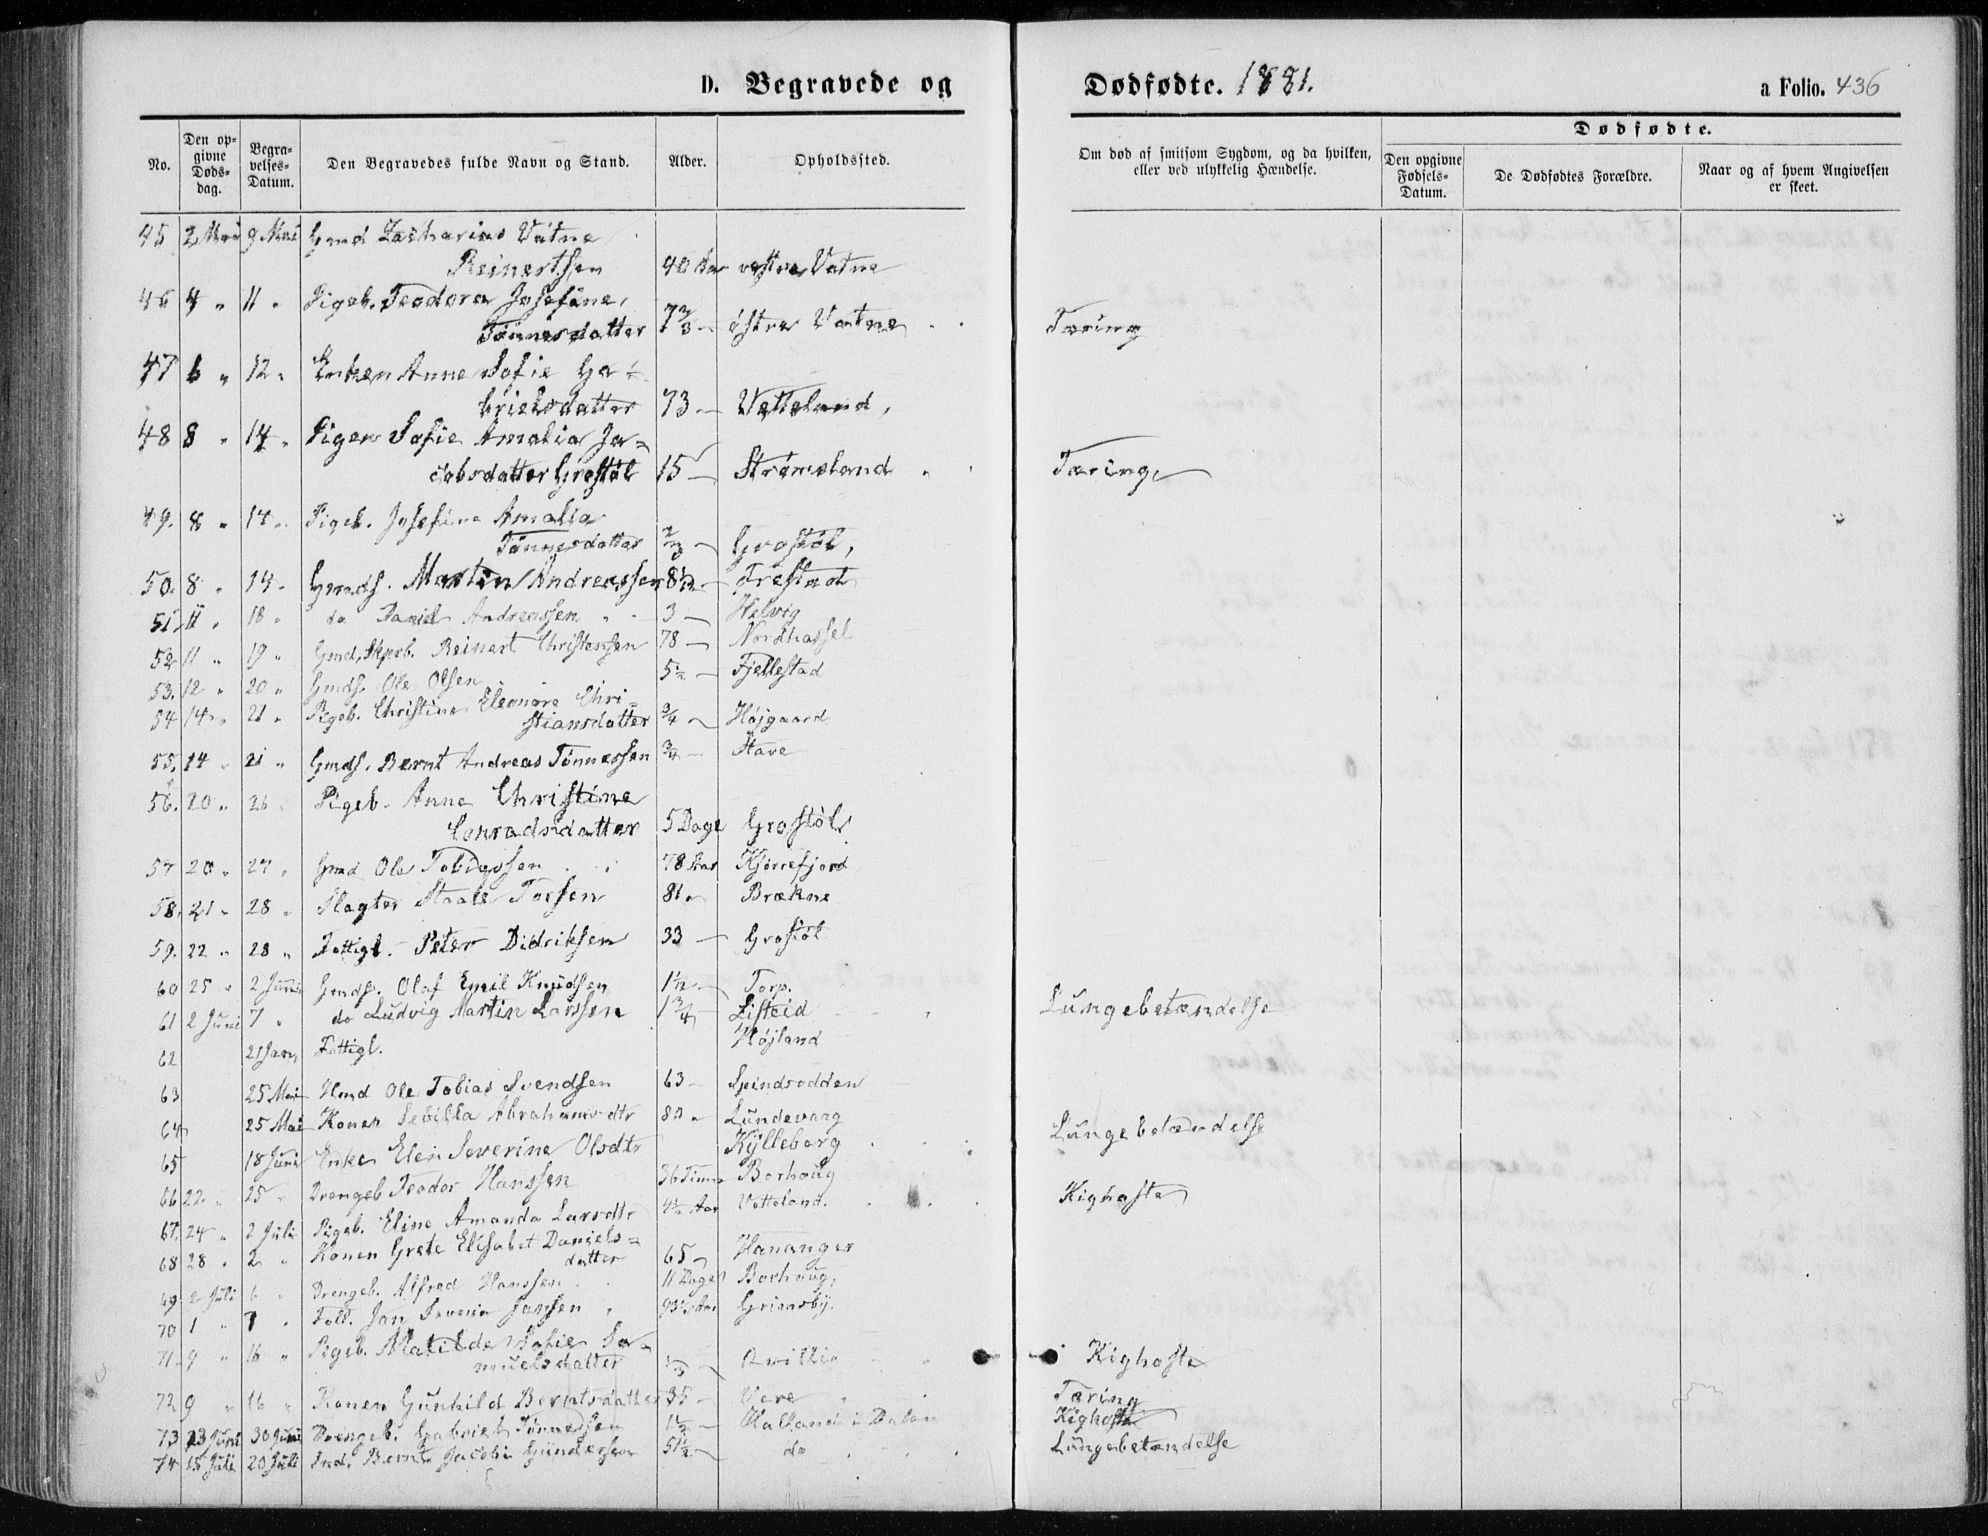 D. Begravede og
Dødfødte. 1881.
a Folio. 436
No.
Den opgivne Døds-dag.
Begravelses-Datum.
Den Begravedes fulde Navn og Stand.
Alder.
Opholdssted.
Om død af smitsom Sygdom, og da hvilken, eller ved ulykkelig Hændelse.
Dødfødte.
Den opgivne Fødsels-Datum.
De Dødfødtes Forældre.
Naar og af hvem Angivelsen er skeet.
45 2 Mai 9 Mai Gmd Zacharias Vatne
Reinertsen 40 Aar vestre Vatne
46 4 " 11 " Pigeb. Teodora Josefine
Tønnesdatter 7 2/3 - østre Vatne Tæring
47 6 " 12 " Enken Anne Sofie Ga-
brielsdatter 73 - Vetteland
48 8 " 14 " Pigen Sofie Amalia Ja-
cobsdatter Grostøl 15 - Strømsland Tæring
49. 8 " 14 " Pigeb. Josefine Amalia
Tønnesdatter 2/3 - Grostøl,
50. 8 " 14 " Gmds. Martin Andreassen 8 1/2 - Frestad
51 11 " 18 " do Daniel Andreassen 3 - Helvig
52 11 " 19 " Gmd, Skprb. Reinert Christensen 78 - Nordhassel
53. 12 " 20 " Gmds. Ole Olsen 5 1/2 - Fjellestad
54 14 " 21 " Pigeb. Christine Eleonore Chri-
stiansdatter 3/4 - Højgaard
55. 14 " 21 " Gmds. Bernt Andreas Tønnessen 3/4 - Stave
56. 20 " 26 Pigeb. Anne Christine
Conradsdatter 5 Dage Grostøl
57 20 " 27 " Gmd Ole Tobiassen 78 Aar Kjørrefjord
58. 21 " 28 " Slagter Staale Torsen 81 " Brækne
59. 22 " 28 " Fattigl. Peter Didriksen 33 - Grostøl
60 25 " 2 Juni Gmds. Olaf Emil Knudsen 1 1/2 - Torp.
61 2 Juni 7 " do Ludvig Martin Larssen 1 3/4 - Listeid Lungebetændelse
62 21 Jan, Fattigl. Højland
63 25 Mai Hmd Ole Tobias Svendsen 63 - Spindsodden
64 25 Mai Konen Sebilla Abrahamsdtr 80 " Lundevaag Lungebetændelse
65 18 Juni Enke Elen Severine Olsdtr Kylleborg
66 22. " 25 " Drengeb Teodor Hanssen 36 Timer Borhaug
67. 24 " 2 Juli Pigeb. Eline Amanda Larsdtr 4 1/2 Aar Vetteland. Kighoste
68 28 " 2 " Konen Grete Elisabet Daniels-
datter 65 - Hananger
69 2 Juli 6 " Drengeb. Alfred Hanssen 11 Dage Borhaug,
70 1 " 7 " Foll. Jan Severin Jansen 93 1/2 Aar Grimsby.
71. 9 " 16 " Pigeb. Matilde Sofie Sa-
muelsdatter 1/3 Kighoste
72 9 " 16 " Konen Gunhild Berntsdatter 35 - Vere Tæring
73 23 Juni 30 Juni Drengeb. Gabriel Tønnessen 1 1/2 - i Dalen Kighoste
74 15 Juli 20 Juli Ind. Bernt Jacobi Gundersen 51 1/2 - do Lungebetændelse